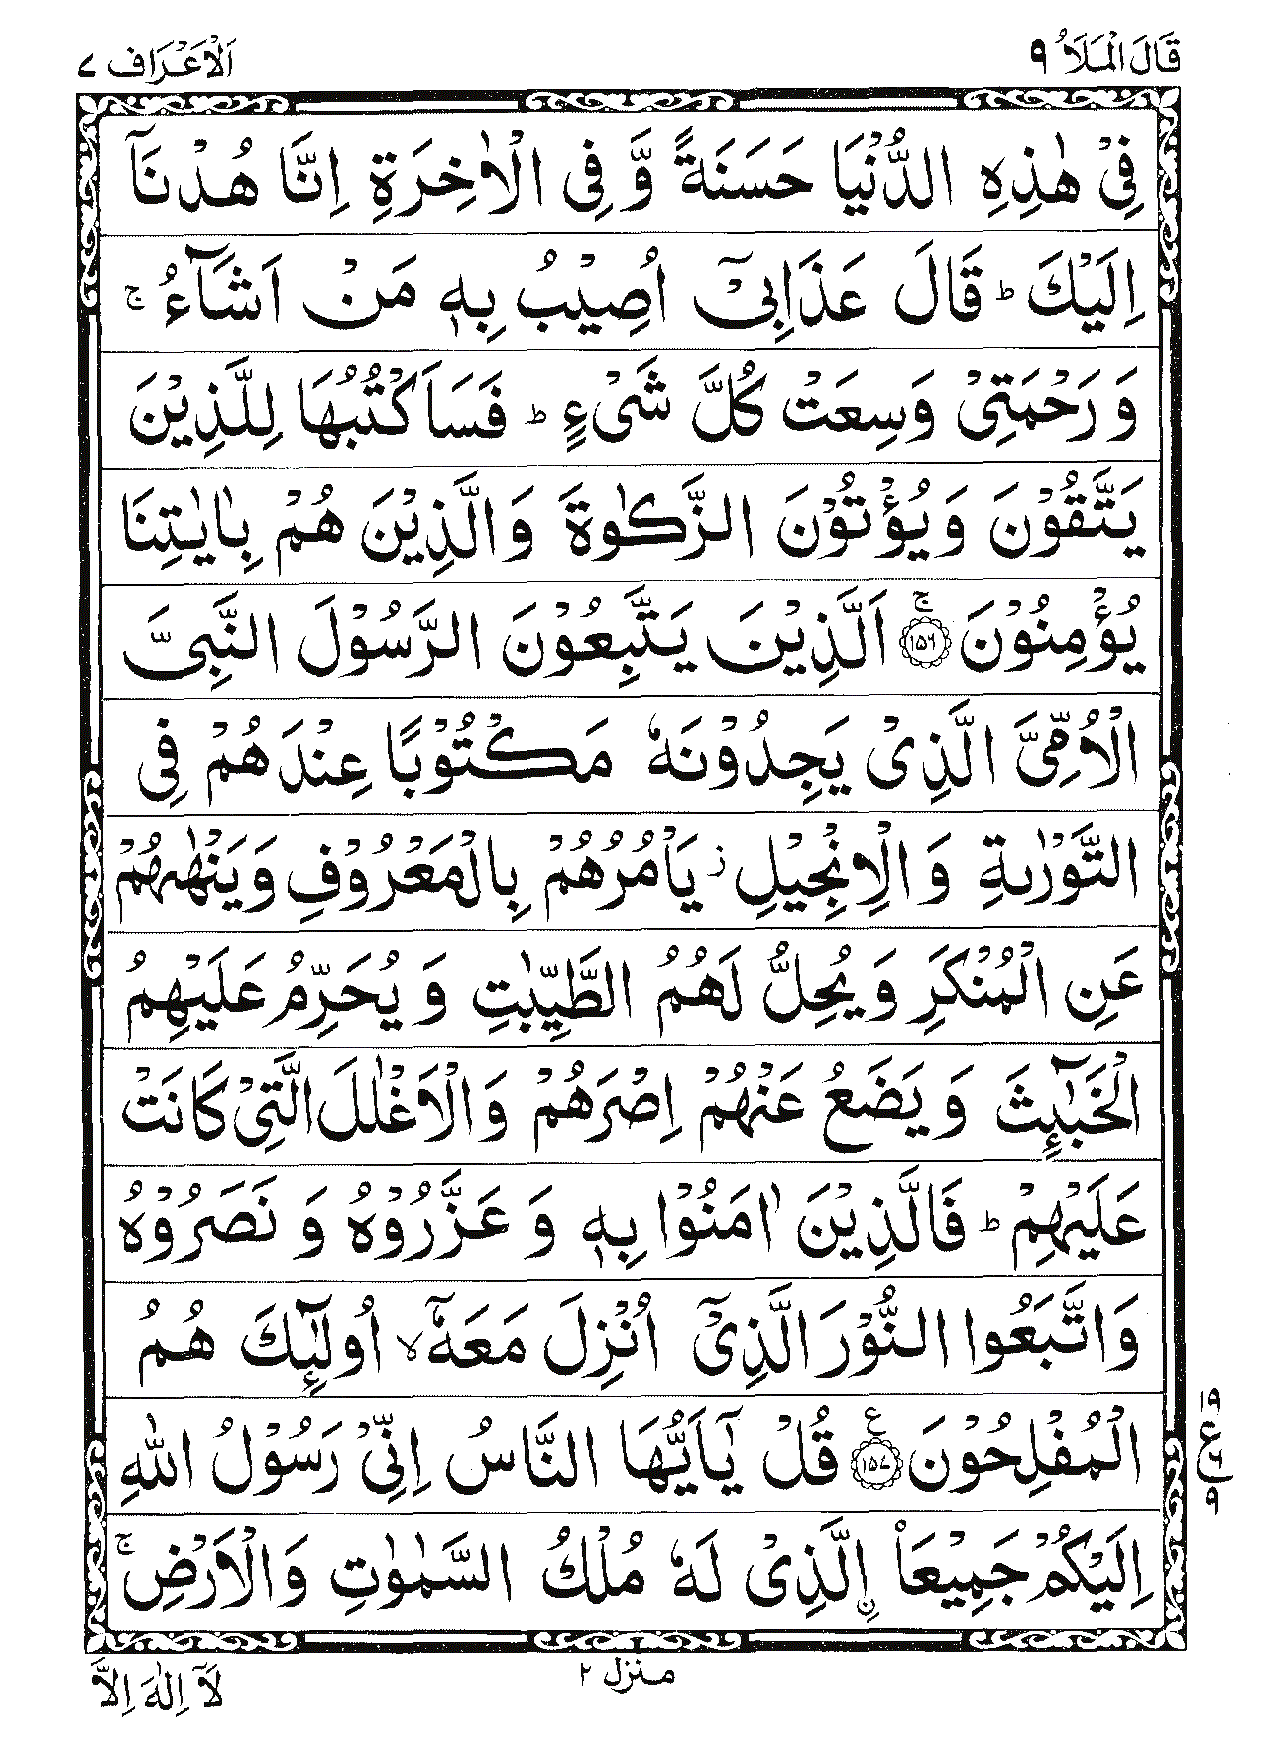 قَالَ الْمَلَاُ ٩
اَلْاَعْرَاف ٧
فِیْ هٰذِهِ الدُّنْیَا حَسَنَةً وَّ فِی الْاٰخِرَةِ اِنَّا هُدْنَاۤ
اِلَیْكَ ؕ قَالَ عَذَابِیْۤ اُصِیْبُ بِهٖ مَنْ اَشَآءُ ۚ
وَ رَحْمَتِیْ وَسِعَتْ كُلَّ شَیْءٍ ؕ فَسَاَكْتُبُهَا لِلَّذِیْنَ
یَتَّقُوْنَ وَ یُؤْتُوْنَ الزَّكٰوةَ وَ الَّذِیْنَ هُمْ بِاٰیٰتِنَا
یُؤْمِنُوْنَ ۚ ﴿١٥٦﴾ اَلَّذِیْنَ یَتَّبِعُوْنَ الرَّسُوْلَ النَّبِیَّ
الْاُمِّیَّ الَّذِیْ یَجِدُوْنَهٗ مَكْتُوْبًا عِنْدَهُمْ فِی
التَّوْرٰىةِ وَ الْاِنْجِیْلِ ؗ یَاْمُرُهُمْ بِالْمَعْرُوْفِ وَ یَنْهٰىهُمْ
عَنِ الْمُنْكَرِ وَ یُحِلُّ لَهُمُ الطَّیِّبٰتِ وَ یُحَرِّمُ عَلَیْهِمُ
الْخَبٰٓىِٕثَ وَ یَضَعُ عَنْهُمْ اِصْرَهُمْ وَ الْاَغْلٰلَ الَّتِیْ كَانَتْ
عَلَیْهِمْ ؕ فَالَّذِیْنَ اٰمَنُوْا بِهٖ وَ عَزَّرُوْهُ وَ نَصَرُوْهُ
وَ اتَّبَعُوا النُّوْرَ الَّذِیْۤ اُنْزِلَ مَعَهٗۤ ۙ اُولٰٓىِٕكَ هُمُ
الْمُفْلِحُوْنَ ﴿١٥٧﴾ ع قُلْ یٰۤاَیُّهَا النَّاسُ اِنِّیْ رَسُوْلُ اللّٰهِ
اِلَیْكُمْ جَمِیْعَاْ ِ۟الَّذِیْ لَهٗ مُلْكُ السَّمٰوٰتِ وَ الْاَرْضِ ۚ
١٩
ع
٦
٩
منزل ٢
لَاۤ اِلٰهَ اِلَّا